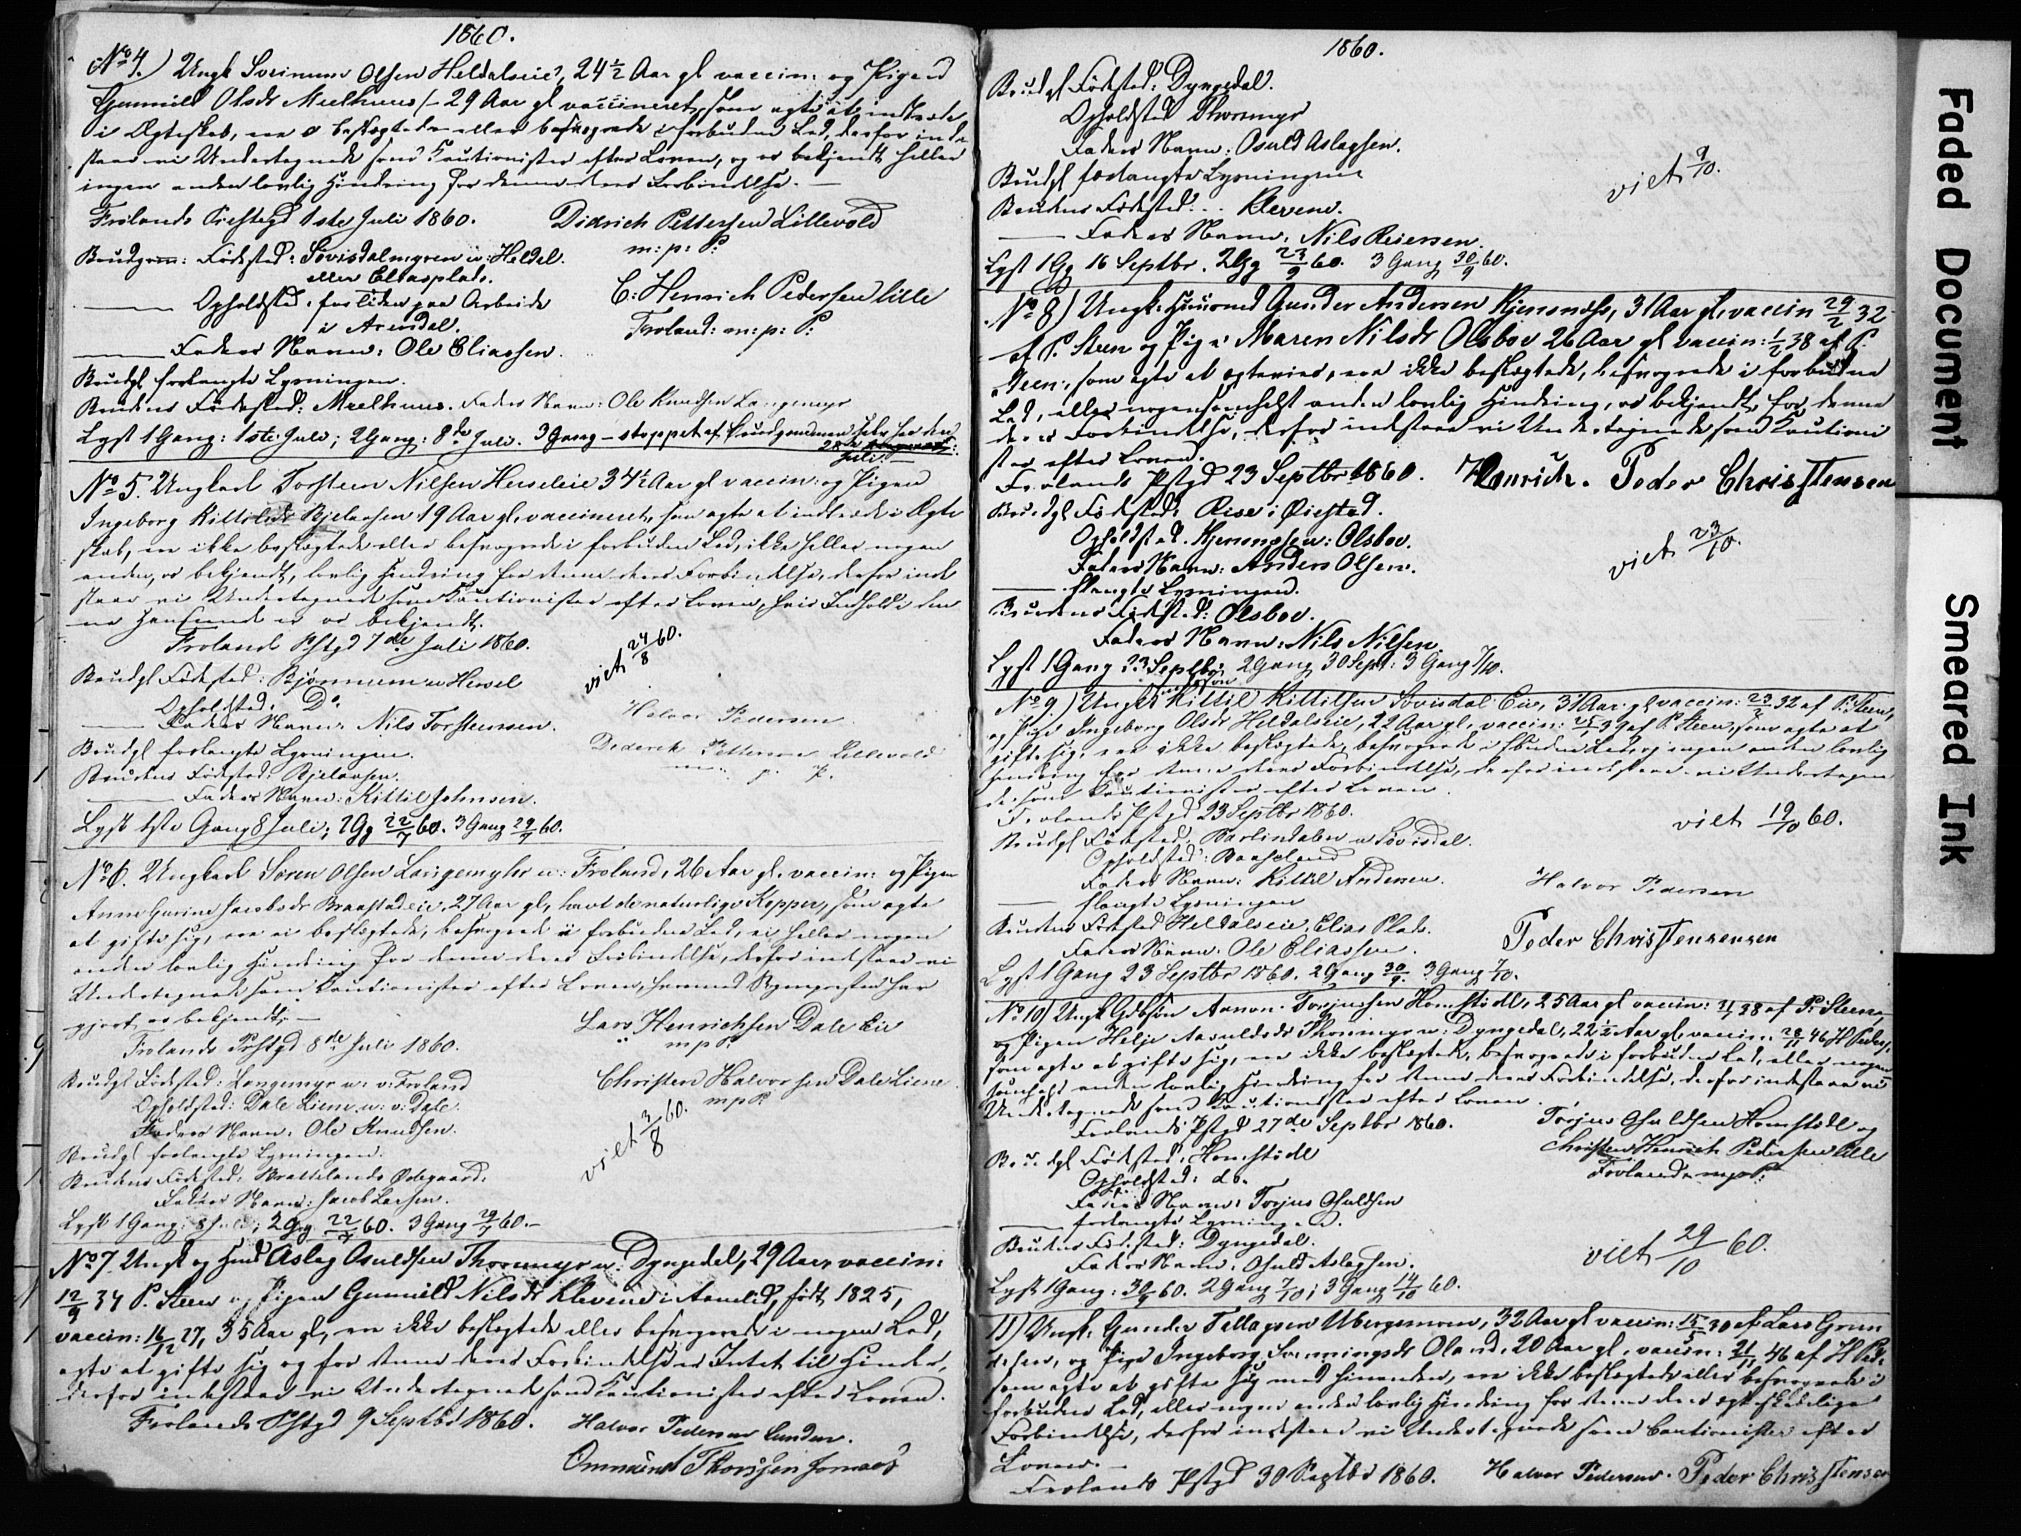 1860.
No 4.) Ungk Sveinum Olsen Heldalseie, 24½ Aar gl vaccin: og Pigen
Gunnild Olsdr Mælhuus /- 29 Aar gl vaccineret, som agte at indtræde
i Ægteskab, ere ei beslægtede eller besvogrede i forbudne Led, derfor inde
staae vi Undertegnede som Cautionister efter Loven, og er bekjendt heller
ingen anden lovlig Hindring for denne deres Forbindelse. —
Frolands Prestegd 1ste Juli 1860. Didrich Pettersen Lillevold
m: p: P:
Brudgom: Fødested: Søvisdalmyren u: Heldal.
eller Eliasplads.
Opholdsted: for tiden paa Arbeide
i Arendal.
C: Henrich Pedersen Lille
Froland: m: p: P:
Faders Navn: Ole Eliassen.
Brudgl forlangte Lysningen.
Brudens Fødested: Mælhuus. Faders Navn: Ole Knudsen Langemyr
Lyst 1 Gang: 1ste Juli; 2 Gang: 8de Juli. 3 Gang – stoppet af Brudgommen
Juli. —
No 5. Ungkarl Torsten Nilsen Herseleie 34½ Aar gl vaccin: og Pigen
Ingeborg Kittelsdr Bjelaasen 19 Aar gl, vaccineret, som agte at indtræde i Ægte
skab, ere ikke beslægtede eller besvogrede i forbuden Led, ikke heller nogen
anden, os bekjendt, lovlig Hindring for denne deres Forbindelse, derfor inde
staae vi Undertegnede som Cautionister efter Loven, hvis Indhold i den
ne Henseende er os bekjendt.
Froland Pstgd 7de Juli 1860.
viet 24/8 60.
Brudgl Fødested: Bjørnmem u Hersel
Opholdsted: Do
Faders Navn: Nils Torstensen.
Halvor Pedersen
Brudgl forlangte Lysningen.
Dederek Pettersen Lillevold
m. p. P.
Brudens Fødested: Bjelaasen.
Faders Navn: Kittil Johnsen.
Lyst 1ste Gang 8 Juli; 2 Gg 22/7 60. 3 Gang 29/7 60.
No 6. Ungkarl Søren Olsen Langemyhr u: Froland, 26 Aar gl. vaccin: og Pigen
Anne Gurine Jacobsdr Braastadeie, 27 Aar gl, havt de naturlige Kopper, som agte
at gifte sig, ere ei beslægtede, besvogrede i forbudne Led, ei heller nogen
anden lovlig Hindring for denne deres Forbindelse, derfor indstaae vi
Undertegnede som Cautionister efter Loven, hvormed Sognepresten har
gjort os bekjendt. —
Frolands Prstgd 8de Juli 1860.
Lars Henrichsen Dale Eie
m p P
Brudgl Fødested: Langemyr u: v: Froland
Opholdsted: Dale Liene u: v: Dale
Faders Navn: Ole Knudsen.
Christen Halvorsen Dale Liene.
m p P.
viet 3/8 60.
Brudgl forlangte Lysningen.
Brudens Fødested: Brattelands Ødegaard.
Faders Navn: Jacob Larsen.
Lyst 1 Gang: 8 Juli; 2 Gg 22/7 60. 3 Gang 29/7 60. —
No 7. Ungk og Huusd Aslag Osuldsen Thormyr u: Dyngedel, 29 Aar, vaccin:
12/9 34 P. Steen og Pigen Gunnild Nilsdr Klevene i Aamlid, født 1825,
vaccin: 16/12 27, 35 Aar gl, ere ikke beslægtede eller besvogrede i nogen Led,
agte at gifte sig og for denne deres Forbindelse er Intet til Hinder,
derfor indestaae vi Undertegnede som Cautionister efter Loven.
Frolands Pstgd 9 Septbr 1860. Halvor Pedersen Lunden.
Ommund Thorsjen
1860.
Brudgl Fødested: Dyngedal.
Opholdsted Thormyr
Faders Navn: Osuld Aslagsen.
Brudgl forlangte Lysningen
viet 9/10.
Brudens Fødested: Klevene.
Faders Navn: Nils Reiersen.
Lyst 1 Gg 16 Septbr. 2 Gg 23/9 60. 3 Gang 30/9 60.
No 8) Ungk: Huusmd Gunder Andersen Hjemnæs, 31 Aar gl, vaccin 29/2 32
af P. Steen og Pige Maren Nilsdr Olsbov 26 Aar gl vaccin: 1/2 38 af P.
Steen, som agte at ægtevies, ere ikke beslægtede, besvogrede i forbudne
Led, eller nogensomhelst anden lovlig Hindring, os bekjendt, for denne
deres Forbindelse, derfor indstaae vi Undertegnede som Cautioni
ster efter Loven.
Frolands Pstgd 23 Septbr 1860. Henrich. Peder Christensen
Brudgl Fødested: Rise i Øiestad.
Opholdsted. Olsbov.
Faders Navn: Anders Olsen.
forlangte Lysningen.
viet 23/10.
Brudens Fødested: Olsbov.
Faders Navn: Nils Nilsen.
Lyst 1 Gang 23 Septbr 2 Gang 30 Sept: 3 Gang 7/10.
No 9) Ungk Kittil Kittilsen Søvisdal Eie, 31 Aar gl vaccin: 23/2 32 af P: Steen,
og Pige Ingeborg Olsdr Heldalseie, 22 Aar gl, vaccin: 39 af P. Steen, som agte at
gifte sig, ere ikke beslægtede, besvogrede i forbudne Led og ingen anden lovlig
Hindring for denne deres Forbindelse, derfor indstaae vi Undertegne
de som Cautionister efter Loven.
Frolands Pstgd 23 Septbr 1860.
viet 19/10 60.
Brudgl Fødested: u Søvisdal.
Opholdsted: Baaseland
Faders Navn: Kittil Andersen.
Halvor Pedersen
forlangte Lysningen
Brudens Fødested Heldalseie, Elias Plads.
Peder Christensensen
Faders Navn: Ole Eliassen.
Lyst 1 Gang 23 Septbr 1860. 2 Gang 30/9. 3 Gang 7/10.
No 10) Ungk Gdbsøn Aanon Torjussen Homstødl, 25 Aar gl vaccin: 38 af P. Steen
og Pigen Helje Aasuldsdr Thormyr u: Dyngedel, 22½ Aar gl, vaccin: 28/11 46 H Peders,
som agte at gifte sig, ere ikke beslægtede, besvogrede i forbuden Led, eller nogen
somhelst anden lovlig Hindring for denne deres Forbindelse, derfor indestaae vi
Undertegnede som Cautionister efter Loven.
Frolands Pstgd 27de Septbr 1860. Torjus Osuldsen Homstødl og
Christen Henrich Pedersen Lille
Froland m p P:
Brudgl Fødested: Homstødl
Opholdsted: do.
Faders Navn: Torjus Osuldsen
forlangte Lysningen.
Brudens Fødested: Dyngedal.
Faders Navn: Osuld Aslagsen.
viet 29/10 60.
Lyst 1 Gang: 30/9 60. 2 Gang 7/10; 3 Gang 14/10 60.
11) Ungk: Gunder Tellagsen Ubergsmoen, 32 Aar gl vaccin: 15/5 30 af Lars Grun
desen, og Pige Ingeborg Svenningsdr Oland, 20 Aar gl, vaccin: 21/11 46 af H Ped:
som agte at gifte sig med hinanden, ere ikke beslægtede eller besvogrede i
forbuden Led, eller nogen anden lovlig Hindring for denne deres ægteskabelige
Forbindelse, derfor indestaae vi Undertegnede som Cautionister efter
Loven. —
Frolands Pstgd 30 Septbr 1860. Halvor Pedersen. Peder Christensen
Faded Document
Smeared Ink